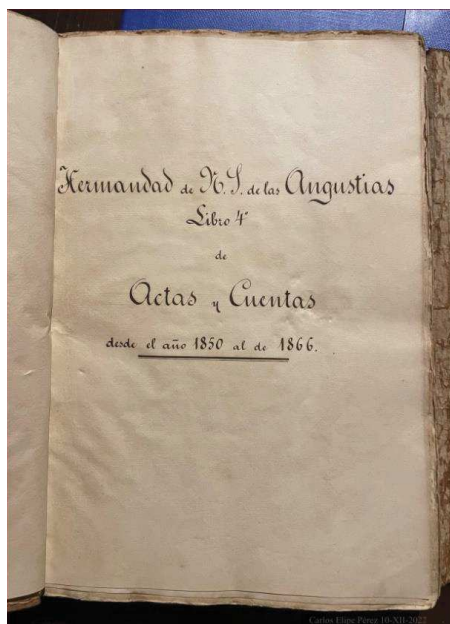 Hermandad de N. S. de las Angustias
Libro 4º
de
Actas y Cuentas
desde el año 1850 al de 1866.
Carlos Elipe Pérez 10-XII-2022